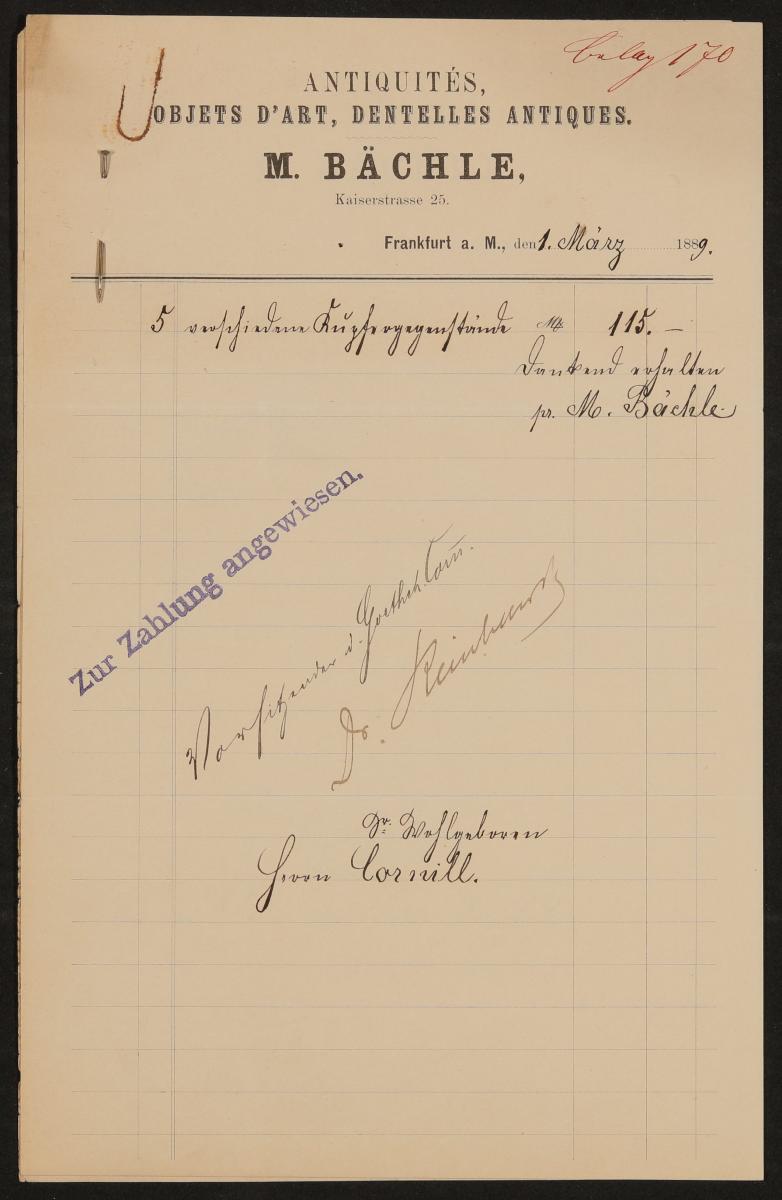 Belag 170
ANTIQUITÉS,
OBJETS D'ART, DENTELLES ANTIQUES.
M. BÄCHLE,
Kaiserstrasse 25.
Frankfurt a. M., den 1. März 1889.
5 verschiedene Kupfergegenstände Mk 115. —
Dankend erhalten
pr. M. Bächle
Zur Zahlung angewiesen.
Vorsitzender d. Goetheh. Com.
Dr.
Sr. Wohlgeboren
Herrn Cornill.